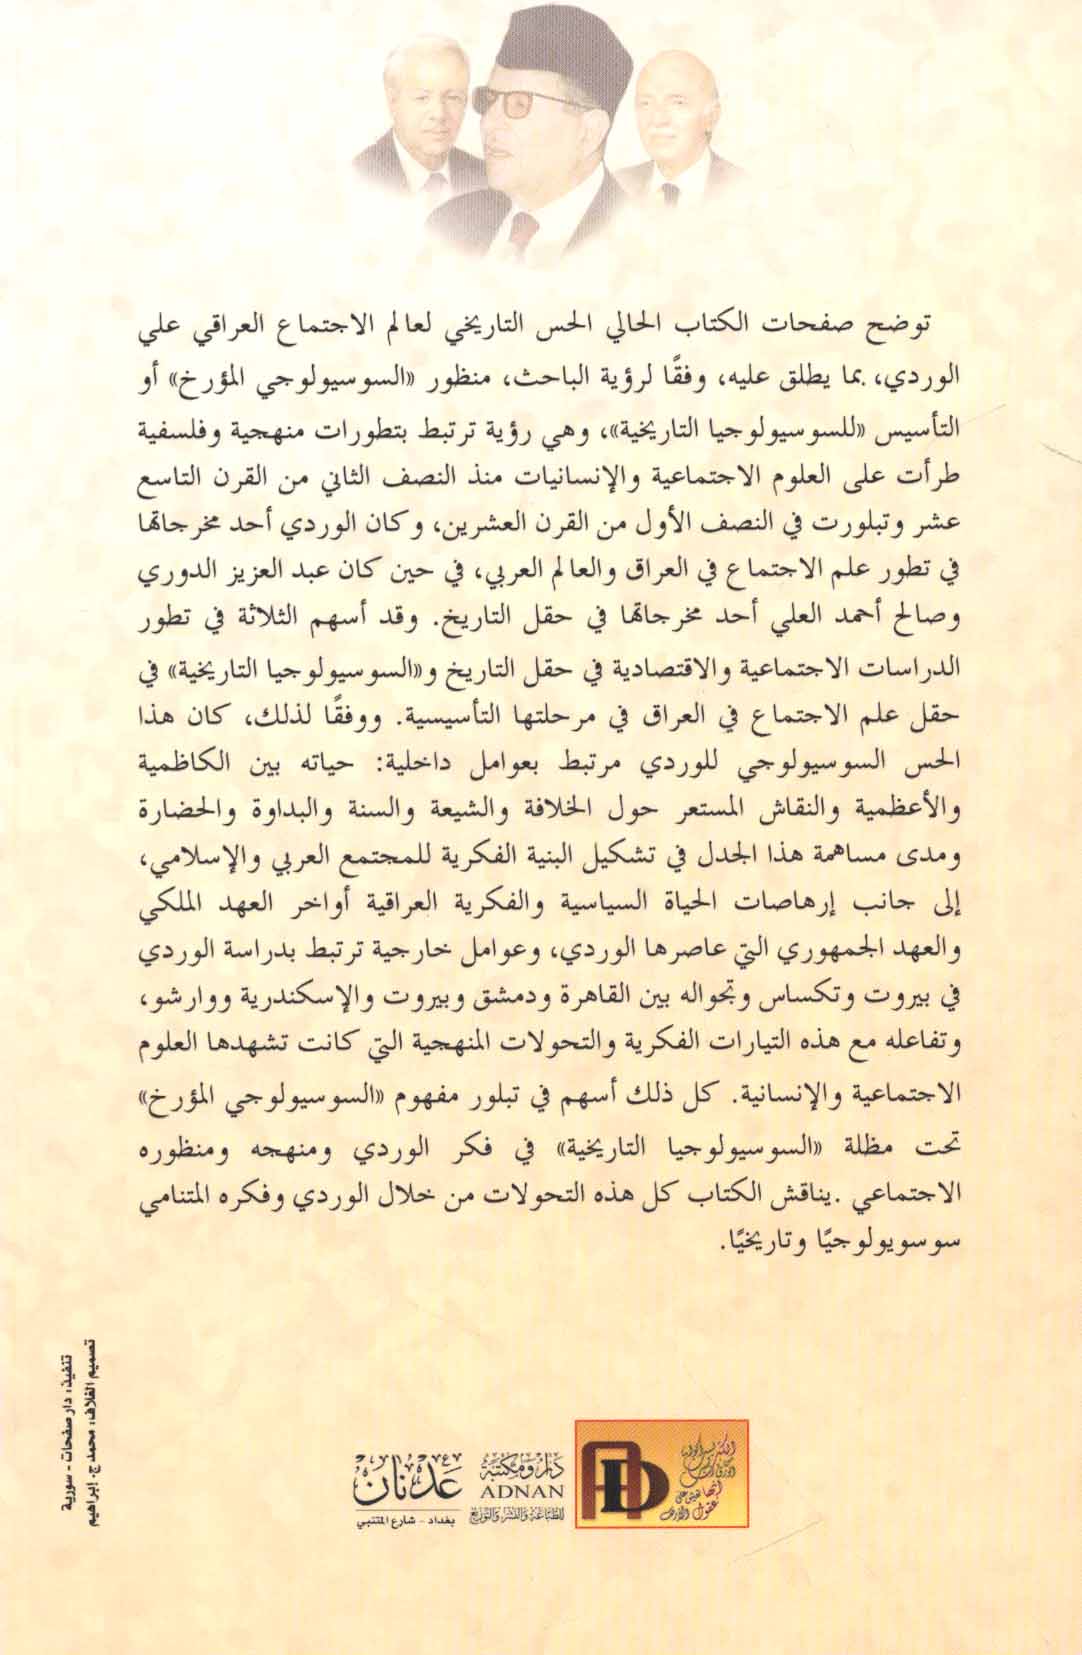 توضح صفحات الكتاب الحالي الحس التاريخي لعالم الاجتماع العراقي علي
الوردي، بما يطلق عليه، وفقًا لرؤية الباحث، منظور «السوسيولوجي المؤرخ» أو
التأسيس «للسوسيولوجيا التاريخية»، وهي رؤية ترتبط بتطورات منهجية وفلسفية
طرأت على العلوم الاجتماعية والإنسانيات منذ النصف الثاني من القرن التاسع
عشر وتبلورت في النصف الأول من القرن العشرين، وكان الوردي أحد مخرجاتها
في تطور علم الاجتماع في العراق والعالم العربي، في حين كان عبد العزيز الدوري
وصالح أحمد العلي أحد مخرجاتها في حقل التاريخ. وقد أسهم الثلاثة في تطور
الدراسات الاجتماعية والاقتصادية في حقل التاريخ و«السوسيولوجيا التاريخية» في
حقل علم الاجتماع في العراق في مرحلتها التأسيسية. ووفقًا لذلك، كان هذا
الحس السوسيولوجي للوردي مرتبط بعوامل داخلية: حياته بين الكاظمية
والأعظمية والنقاش المستعر حول الخلافة والشيعة والسنة والبداوة والحضارة
ومدى مساهمة هذا الجدل في تشكيل البنية الفكرية للمجتمع العربي والإسلامي،
إلى جانب إرهاصات الحياة السياسية والفكرية العراقية أواخر العهد الملكي
والعهد الجمهوري التي عاصرها الوردي، وعوامل خارجية ترتبط بدراسة الوردي
في بيروت وتكساس وتجواله بين القاهرة ودمشق وبيروت والإسكندرية ووارشو،
وتفاعله مع هذه التيارات الفكرية والتحولات المنهجية التي كانت تشهدها العلوم
الاجتماعية والإنسانية. كل ذلك أسهم في تبلور مفهوم «السوسيولوجي المؤرخ»
تحت مظلة «السوسيولوجيا التاريخية» في فكر الوردي ومنهجه ومنظوره
الاجتماعي .يناقش الكتاب كل هذه التحولات من خلال الوردي وفكره المتنامي
سوسويولوجيًا وتاريخيًا.
تنفيذ: دار صفحات - سورية
تصميم الغلاف: محمد ج. إبراهيم
دار ومكتبة
عدنان
ADNAN
للطباعة والنشر والتوزيع
بغداد - شارع المتنبي